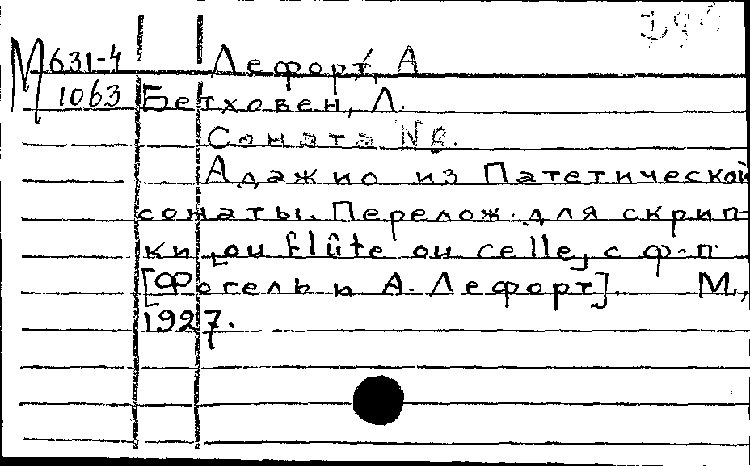 М 631-4 Лефорт, А
1063 Бетховен, Л.
Соната №8.
Адажио из Патетической
сонаты. Перелож. для скрип-
ки [ou flûte ou celle] с ф-п.
[Фогель и А. Лефорт]. М.,
1927.